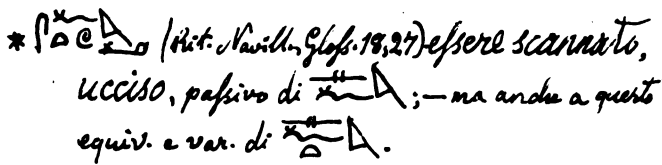 * (Rit. Navill, Gloss. 18,27) essere scannato,
ucciso, passivo di ; — ma anche a questo
equiv. e var. di .